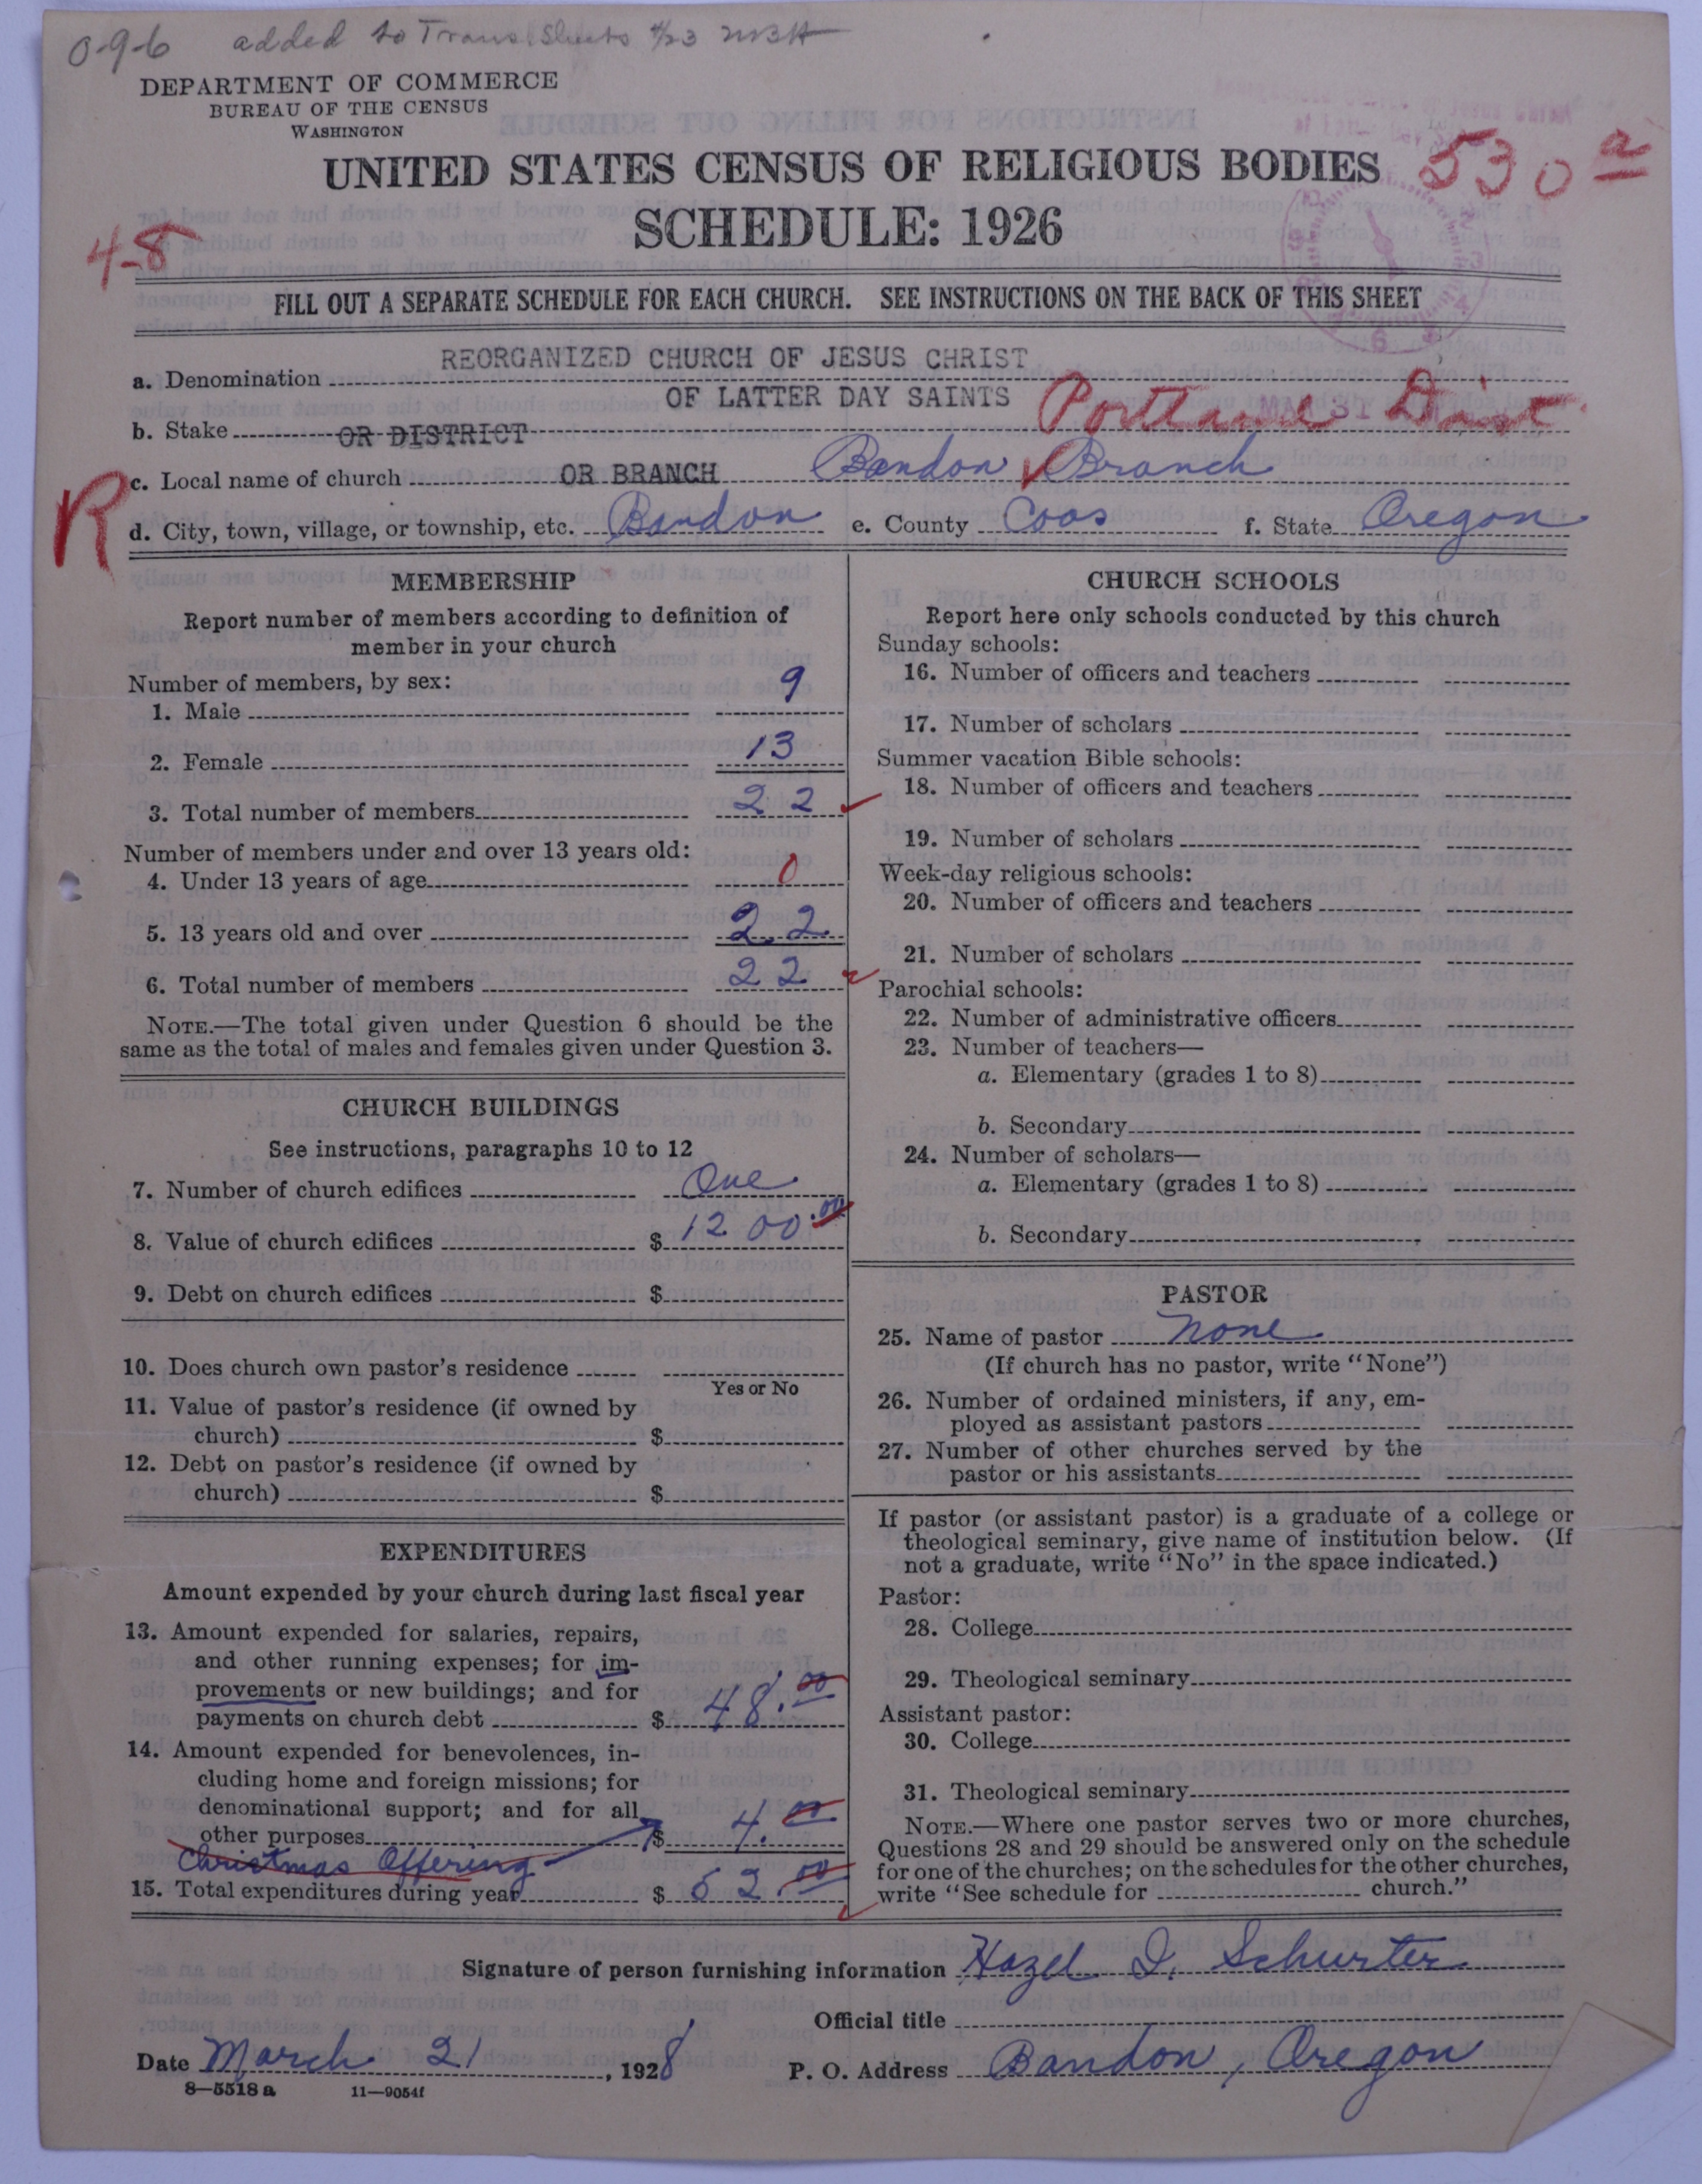 0-9-6 added to Trans. Sheets 4/23
DEPARTMENT OF COMMERCE
BUREAU OF THE CENSUS
WASHINGTON
UNITED STATES CENSUS OF RELIGIOUS BODIES
530 a
SCHEDULE: 1926
4-8
FILL OUT A SEPARATE SCHEDULE FOR EACH CHURCH. SEE INSTRUCTIONS ON THE BACK OF THIS SHEET
REORGANIZED CHURCH OF JESUS CHRIST
a. Denomination
OF LATTER DAY SAINTS Portland Dist.
MAR 31
b. Stake OR DISTRICT
R
c. Local name of church OR BRANCH Bandon Branch
d. City, town, village, or township, etc. Bandon e. County Coos f. State Oregon
MEMBERSHIP
Report number of members according to definition of
member in your church
Number of members, by sex:
1. Male 9
2. Female 13
3. Total number of members 22
Number of members under and over 13 years old:
4. Under 13 years of age 0
5. 13 years old and over 22
6. Total number of members 22
NOTE.—The total given under Question 6 should be the
same as the total of males and females given under Question 3.
CHURCH BUILDINGS
See instructions, paragraphs 10 to 12
7. Number of church edifices One
8. Value of church edifices $ 1200.00
9. Debt on church edifices $
10. Does church own pastor's residence
Yes or No
11. Value of pastor's residence (if owned by
church) $
12. Debt on pastor's residence (if owned by
church) $
EXPENDITURES
Amount expended by your church during last fiscal year
13. Amount expended for salaries, repairs,
and other running expenses; for im-
provements or new buildings; and for
payments on church debt $ 48.00
14. Amount expended for benevolences, in-
cluding home and foreign missions; for
denominational support; and for all
other purposes $ 4.00
Christmas Offering
15. Total expenditures during year $ 52.00
CHURCH SCHOOLS
Report here only schools conducted by this church
Sunday schools:
16. Number of officers and teachers
17. Number of scholars
Summer vacation Bible schools:
18. Number of officers and teachers
19. Number of scholars
Week-day religious schools:
20. Number of officers and teachers
21. Number of scholars
Parochial schools:
22. Number of administrative officers
23. Number of teachers—
a. Elementary (grades 1 to 8)
b. Secondary
24. Number of scholars—
a. Elementary (grades 1 to 8)
b. Secondary
PASTOR
25. Name of pastor None
(If church has no pastor, write "None")
26. Number of ordained ministers, if any, em-
ployed as assistant pastors
27. Number of other churches served by the
pastor or his assistants
If pastor (or assistant pastor) is a graduate of a college or
theological seminary, give name of institution below. (If
not a graduate, write "No" in the space indicated.)
Pastor:
28. College
29. Theological seminary
Assistant pastor:
30. College
31. Theological seminary
NOTE.—Where one pastor serves two or more churches,
Questions 28 and 29 should be answered only on the schedule
for one of the churches; on the schedules for the other churches,
write "See schedule for church."
Signature of person furnishing information Hazel I. Schurter
Official title
Date March 21, 1928 P. O. Address Bandon, Oregon
8—5518 a 11—9054f